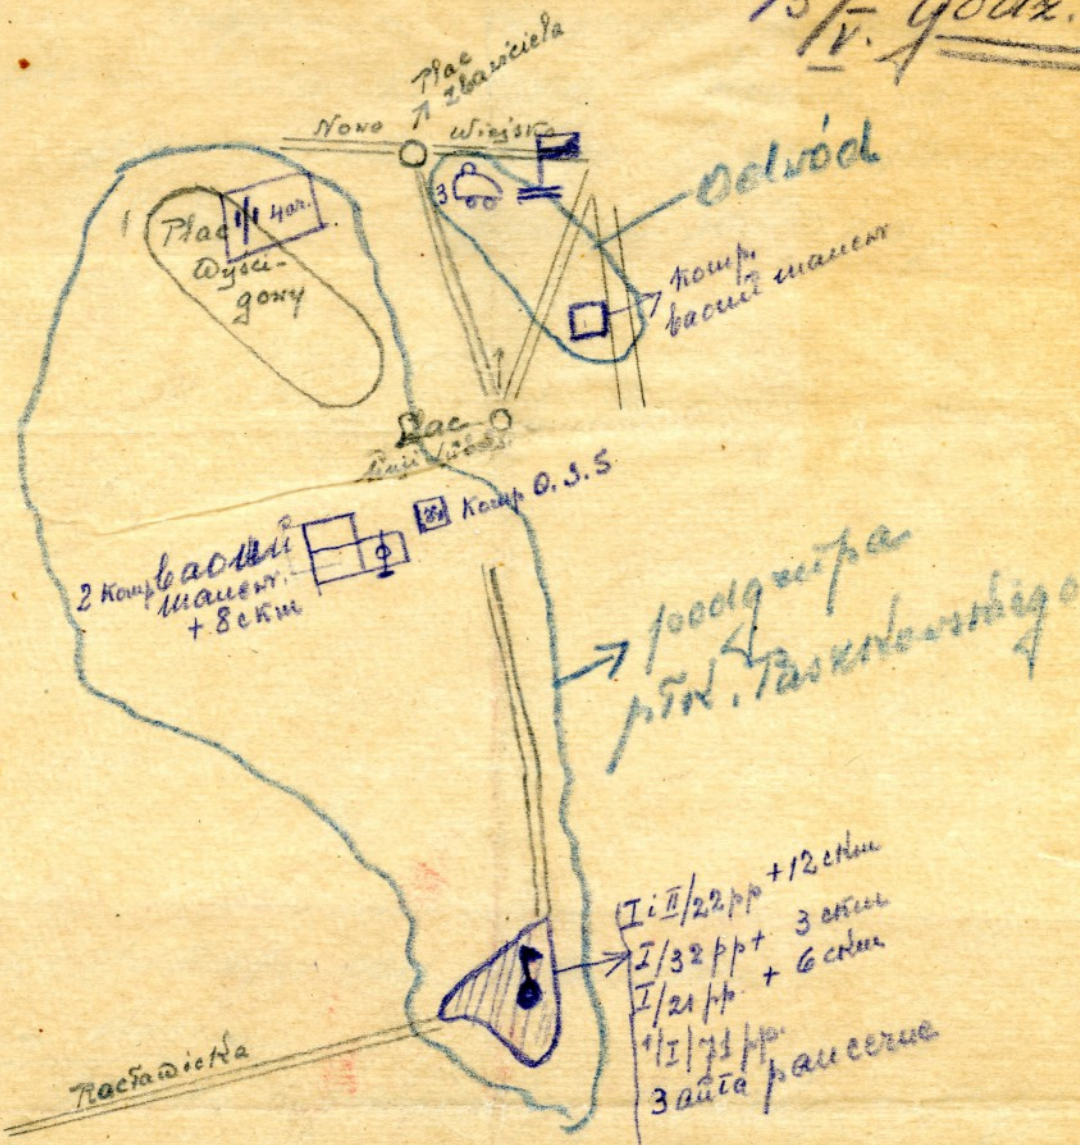 13/V. godz.
Plac
Zbawiciela
Nowo Wiejska
Odwód
3
Plac
Wyści-
gowy
4 dz.
komp.
baonu manewr
Plac
Unji Lubel.
Komp O.S.S
2 komp baonu
manewr.
+ 8 ckm
podgrupa
płk. Paszkowskiego
I i II/22 pp + 12 ckm
I/32 pp + 3 ckm
I/21 pp. + 6 ckm
1/I/71 pp.
3 auta pancerne
Racławicka